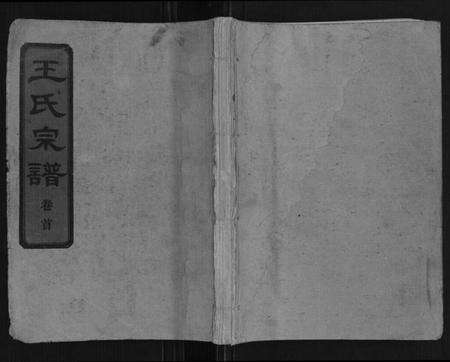 王氏宗譜
卷首